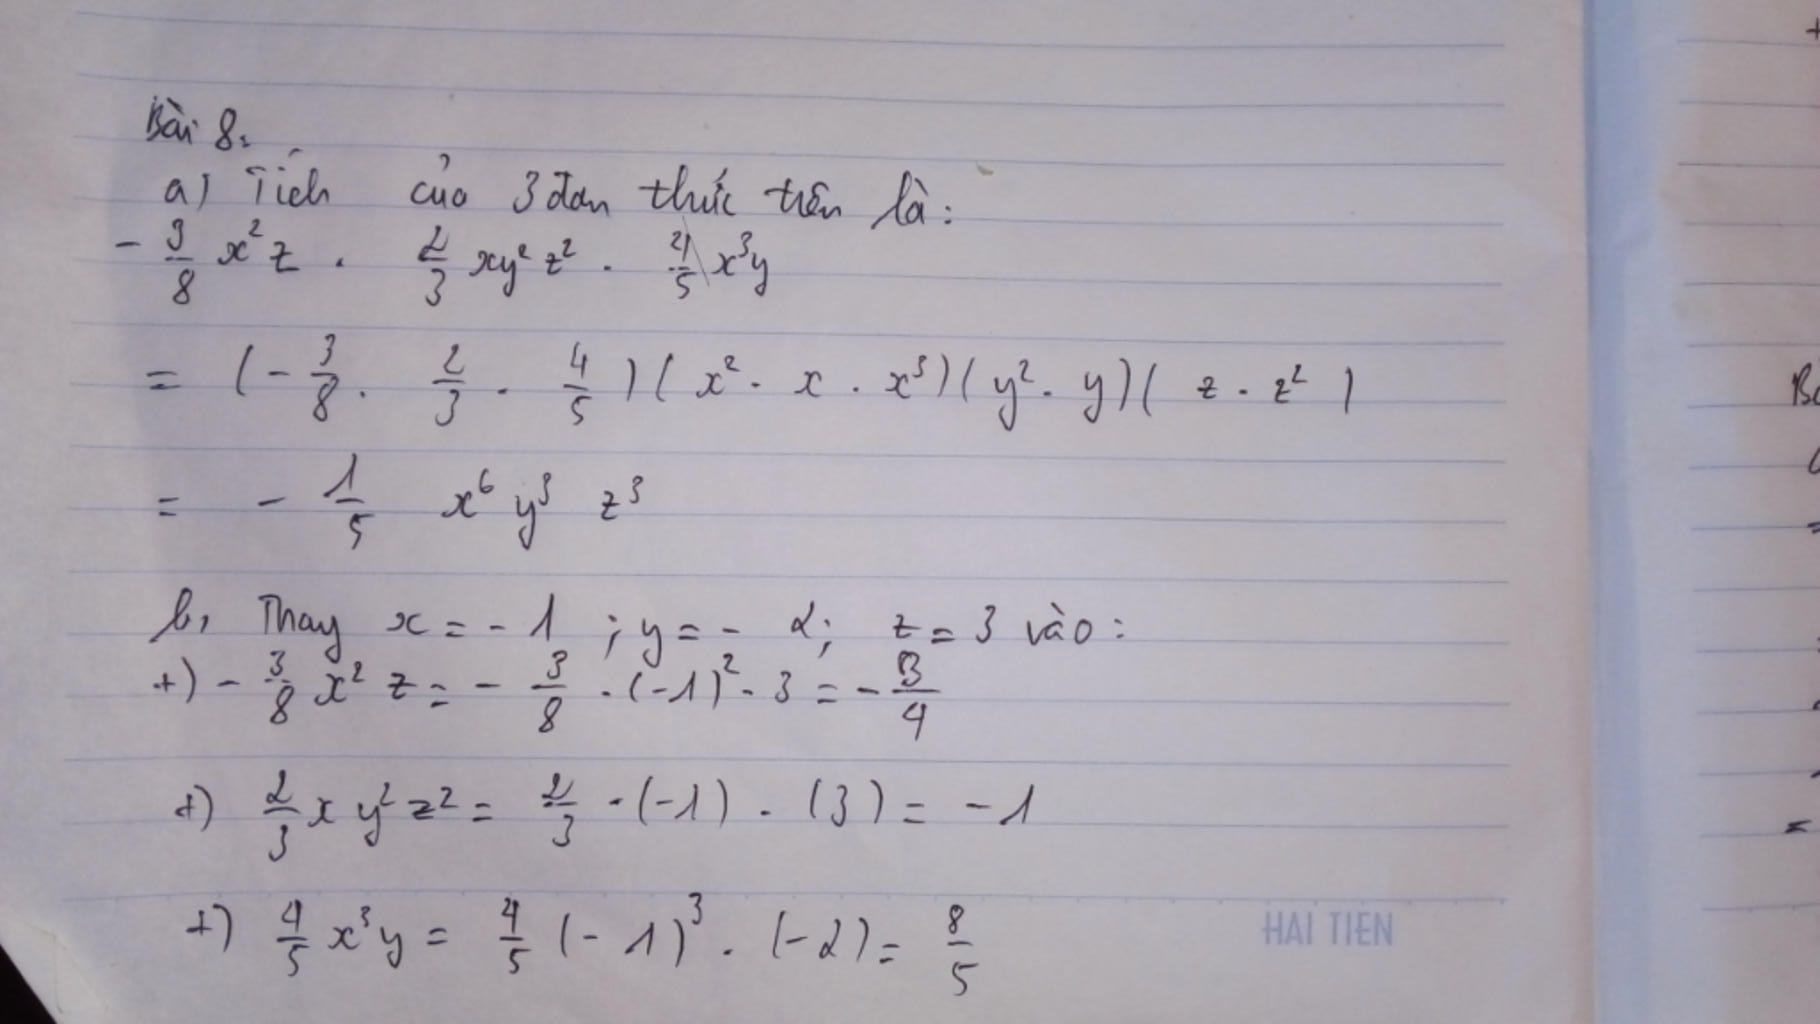 Bài 8.
a) Tích của 3 đơn thức trên là:
- 3/8 x² z . 2/3 xy² z² . 4/5 x³y
= (- 3/8 . 2/3 . 4/5) (x² . x . x³) (y² . y) (z . z²)
= - 1/5 x⁶ y³ z³
b, Thay x = - 1 ; y = - 2 ; z = 3 vào :
+) - 3/8 x² z = - 3/8 . (-1)² . 3 = - 3/4
+) 2/3 x y² z² = 2/3 . (-1) . (3) = - 1
+) 4/5 x³ y = 4/5 (- 1)³ . (-2) = 8/5
HAI TIEN